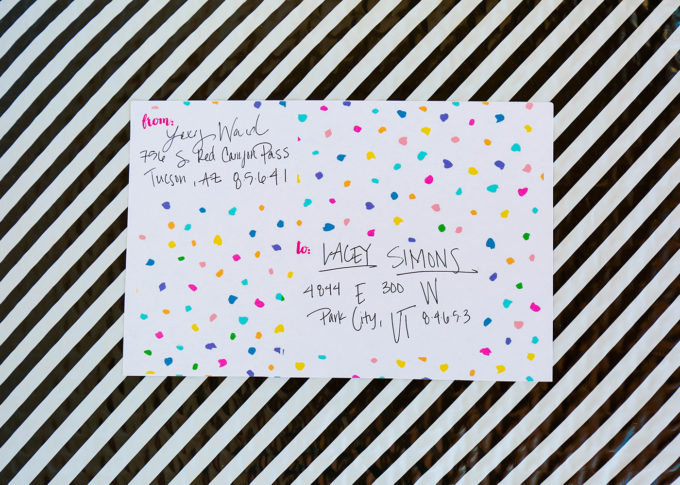 from:
Ward
756 S. Red Canyon Pass
Tucson, AZ 85641
to:
LACEY SIMONS
4844 E 300 W
Park City, UT 84653